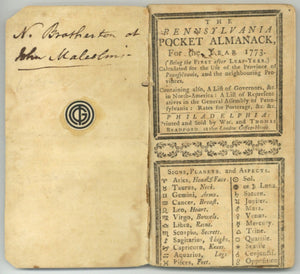 N. Brotherton at
John Malcolm's
THE
PENNSYLVANIA
POCKET ALMANACK,
For the YEAR 1773.
(Being the FIRST after LEAP-YEAR.)
Calculated for the Use of the Province of
Pennsylvania, and the neighbouring Pro-
vinces.
Containing also, A List of Governors, &c
in North-America: A List of Represent-
atives in the General Assembly of Penn-
sylvania: Rates for Porterage, &c. &c.
PHILADELPHIA:
Printed and Sold by WM. and THOMAS
BRADFORD, at the London Coffee-House
SIGNS, PLANETS, and ASPECTS.
♈ Aries, Head & Face. ☉ Sol.
♉ Taurus, Neck. ☽ Luna.
♊ Gemini, Arms. ♄ Saturn.
♋ Cancer, Breast. ♃ Jupiter.
♌ Leo, Heart. ♂ Mars.
♍ Virgo, Bowels. ♀ Venus.
♎ Libra, Reins. ☿ Mercury.
♏ Scorpio, Secrets. △ Trine.
♐ Sagitarius, Thighs. □ Quartile.
♑ Capricorn, Knees. Sextile.
♒ Aquarius, Legs. ☌ Conjunct.
♓ Pisces, Feet. ☍ Opposition.